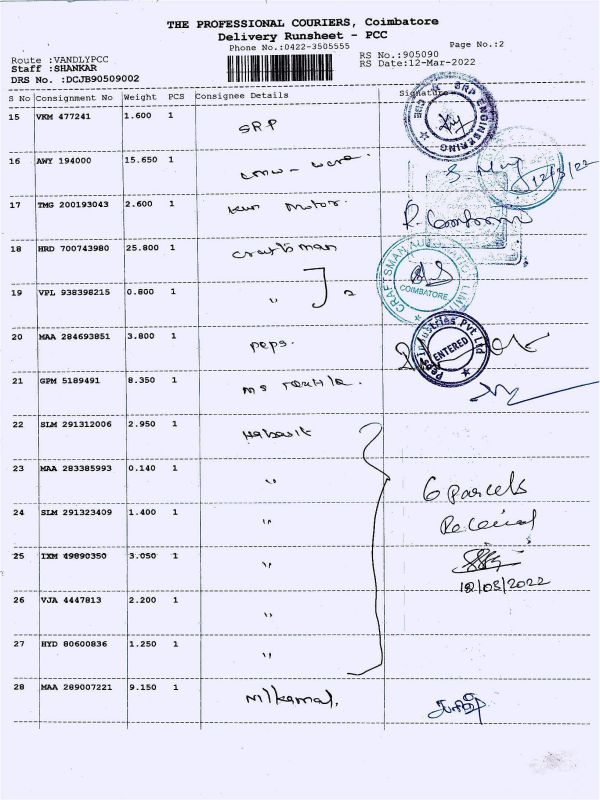 THE PROFESSIONAL COURIERS, Coimbatore
Delivery Runsheet - PCC
Phone No.:0422-3505555
Page No.:2
Route :VANDLYPCC
Staff :SHANKAR
DRS No. :DCJB90509002
RS No.:905090
RS Date:12-Mar-2022
S No Consignment No Weight PCS Consignee Details Signature
15 VKM 477241 1.600 1 SRP
SRP ENGINEERING CBE
16 AWY 194000 15.650 1
12/3/22
17 TMG 200193043 2.600 1 Motor
18 HRD 700743980 25.800 1 craftsman
CRAFTSMAN AUTOMATION LIMITED
COIMBATORE
19 VPL 938398215 0.800 1 " 2
20 MAA 284693851 3.800 1 peps.
Peps Industries Pvt Ltd
ENTERED
21 GPM 5189491 8.350 1 MS
22 SLM 291312006 2.950 1
23 MAA 283385993 0.140 1 "
6 Parcels
24 SLM 291323409 1.400 1 "
Received
25 IXM 49890350 3.050 1 "
12/03/2022
26 VJA 4447813 2.200 1 "
27 HYD 80600836 1.250 1 "
28 MAA 289007221 9.150 1 Nilkamal.